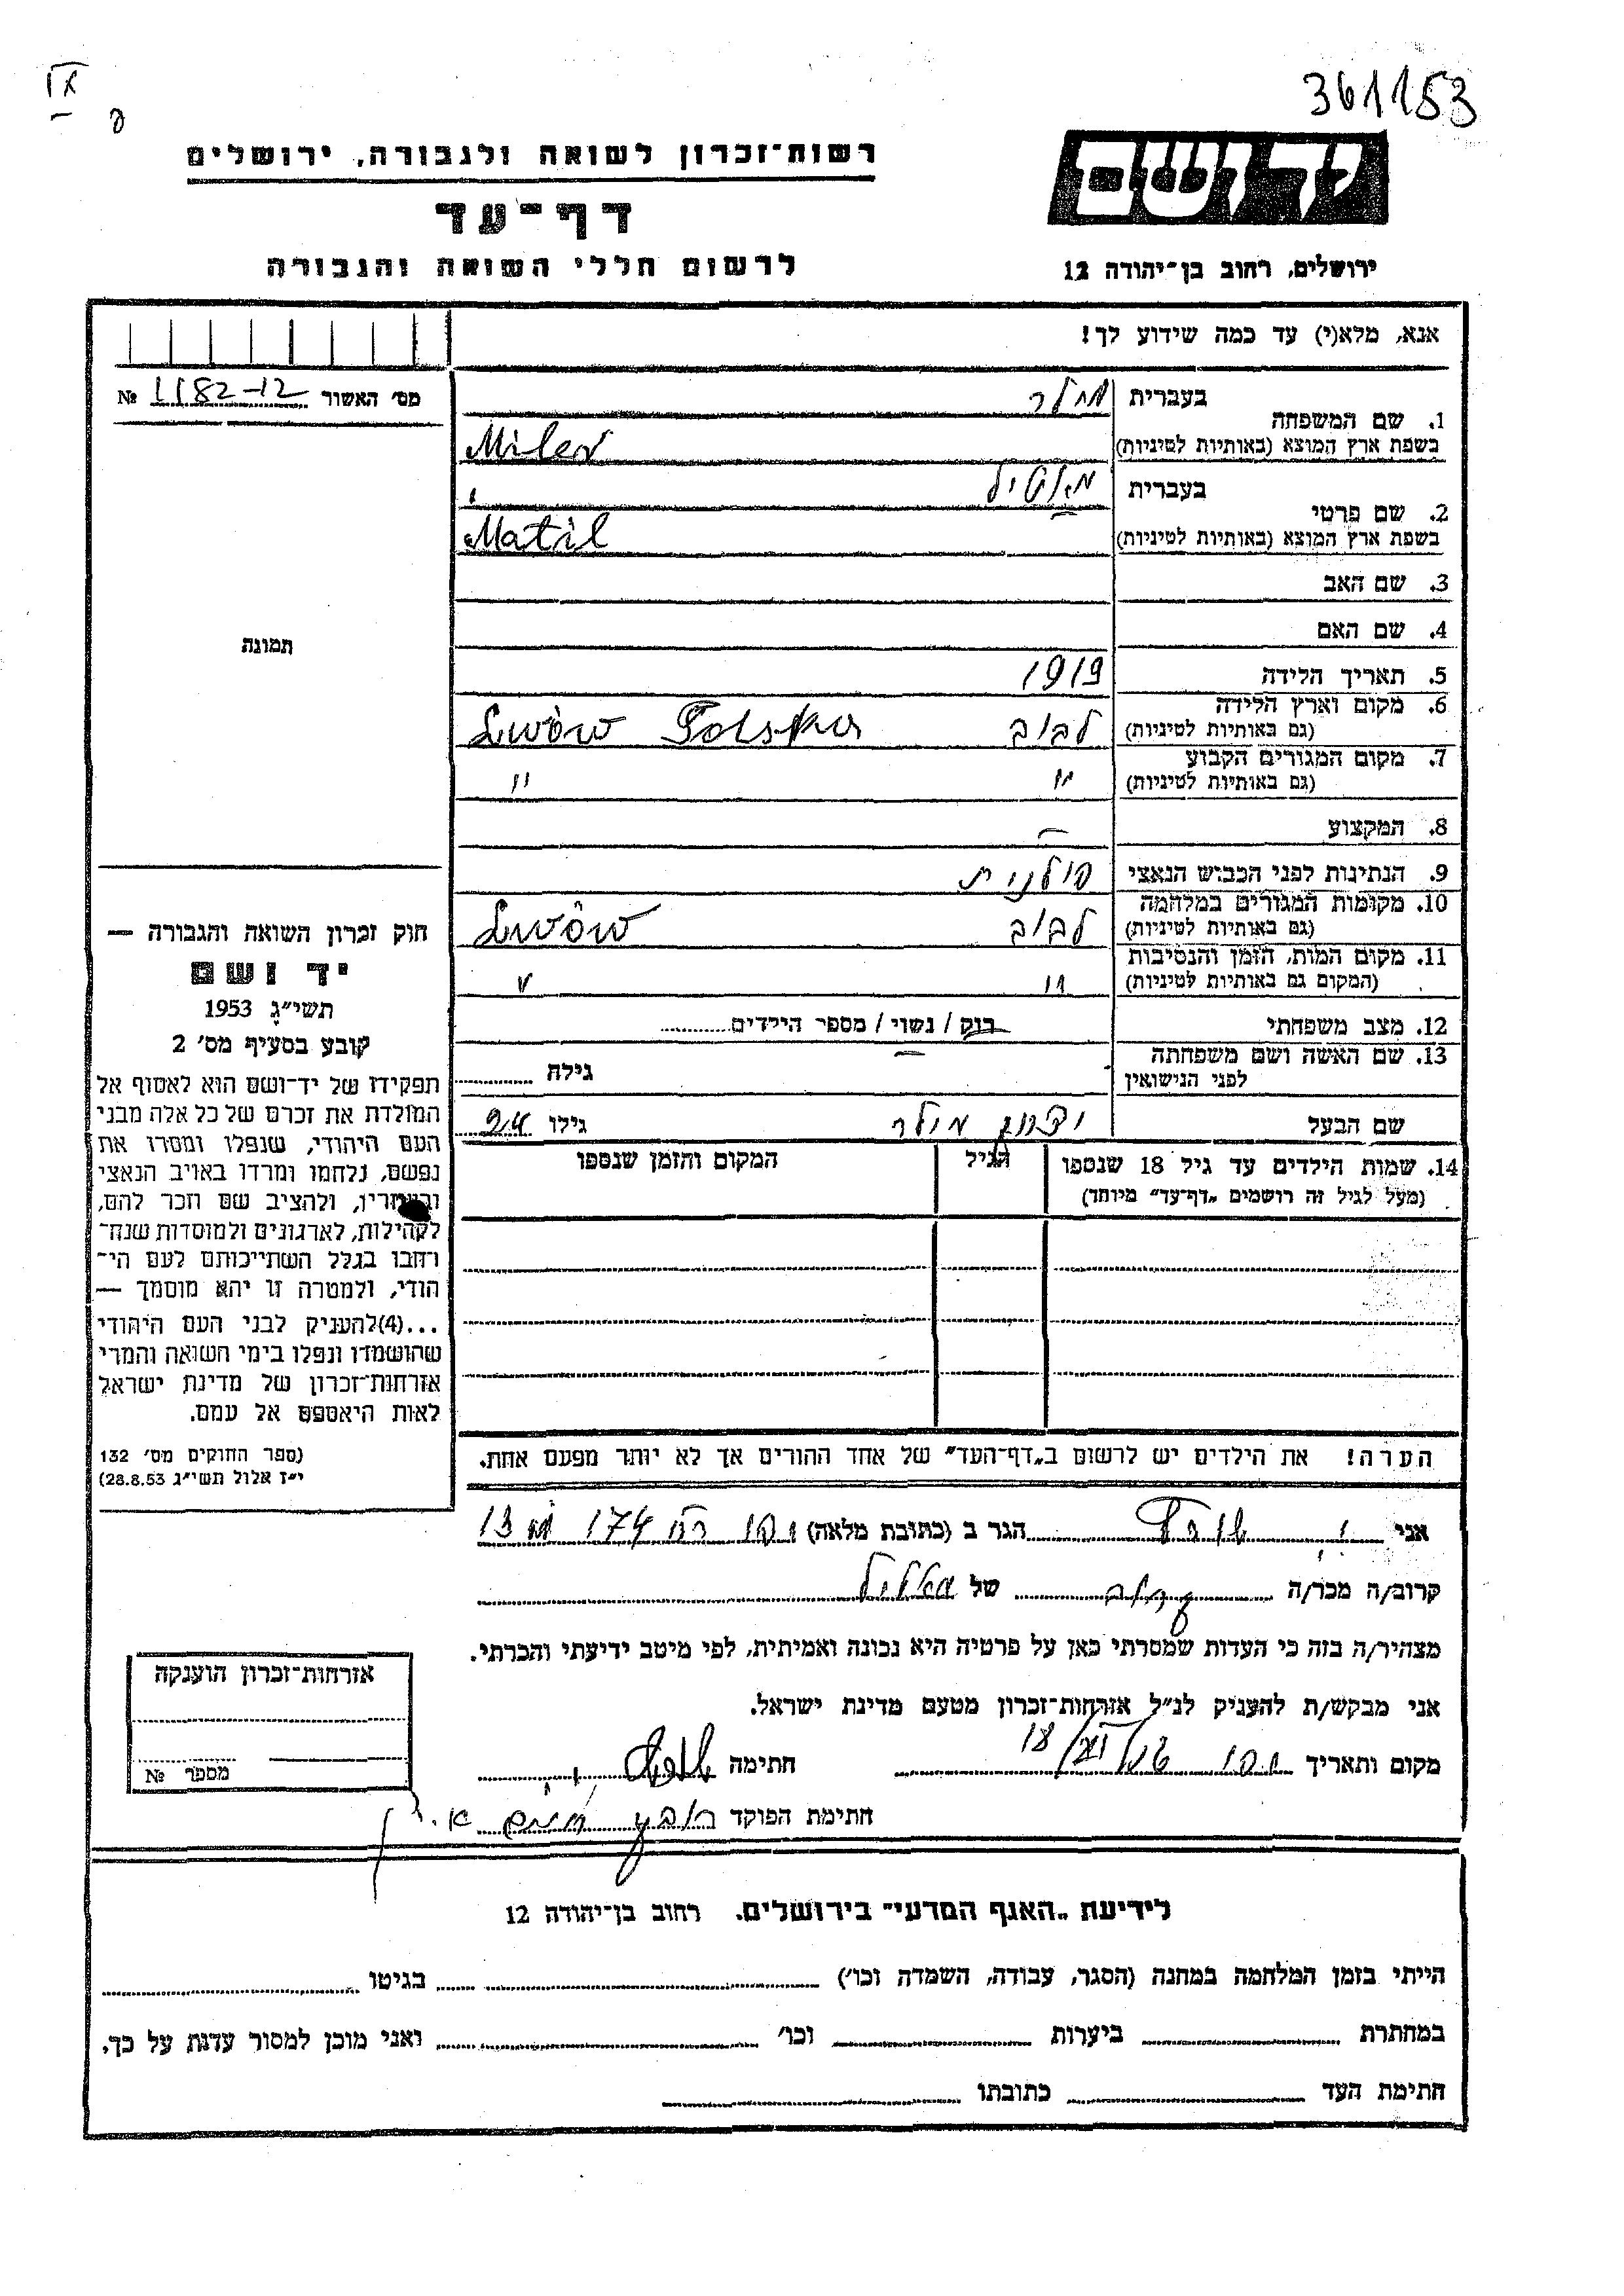 361153
רשות־זכרון לשואה ולגבורה, ירושלים
יד ושם
דף־עד
לרשום חללי השואה והגבורה
ירושלים, רחוב בן־יהודה 12
אנא, מלא(י) עד כמה שידוע לך!
מס׳ האשור № 1182-12
1. שם המשפחה
בעברית מילר
בשפת ארץ המוצא (באותיות לטיניות) Miler
2. שם פרטי
בעברית מאטיל
בשפת ארץ המוצא (באותיות לטיניות) Matil
3. שם האב
4. שם האם
תמונה
5. תאריך הלידה 1919
6. מקום וארץ הלידה
(גם באותיות לטיניות) לבוב Lwów Polska
7. מקום המגורים הקבוע
(גם באותיות לטיניות) " "
8. המקצוע —
9. הנתינות לפני הכבוש הנאצי פולנית
10. מקומות המגורים במלחמה
(גם באותיות לטיניות) לבוב Lwów
11. מקום המות, הזמן והנסיבות
(המקום גם באותיות לטיניות) " "
12. מצב משפחתי רוק / נשוי / מספר הילדים
13. שם האשה ושם משפחתה
לפני הנישואין — גילה
שם הבעל יצחק מילר גילו 24
14. שמות הילדים עד גיל 18 שנספו
(מעל לגיל זה רושמים „דף־עד" מיוחד)
הגיל
המקום והזמן שנספו
חוק זכרון השואה והגבורה —
יד ושם
תשי״ג 1953
קובע בסעיף מס׳ 2
תפקידו של יד־ושם הוא לאסוף אל
המולדת את זכרם של כל אלה מבני
העם היהודי, שנפלו ומסרו את
נפשם, נלחמו ומרדו באויב הנאצי
ובעוזריו, ולהציב שם וזכר להם,
לקהילות, לארגונים ולמוסדות שנח־
רבו בגלל השתייכותם לעם הי־
הודי, ולמטרה זו יהא מוסמך —
...(4) להעניק לבני העם היהודי
שהושמדו ונפלו בימי השואה והמרי
אזרחות־זכרון של מדינת ישראל
לאות היאספם אל עמם.
(ספר החוקים מס׳ 132
י״ז אלול תשי״ג 28.8.53)
הערה! את הילדים יש לרשום ב„דף־העד" של אחד ההורים אך לא יותר מפעם אחת.
אני הגר ב (כתובת מלאה) 174 13
קרוב/ה מכר/ה של מאטיל
מצהיר/ה בזה כי העדות שמסרתי כאן על פרטיה היא נכונה ואמיתית, לפי מיטב ידיעתי והכרתי.
אני מבקש/ת להעניק לנ״ל אזרחות־זכרון מטעם מדינת ישראל.
מקום ותאריך חתימה
חתימת הפוקד
אזרחות־זכרון הוענקה
מספר №
לידיעת „האגף המדעי" בירושלים. רחוב בן־יהודה 12
הייתי בזמן המלחמה במחנה (הסגר, עבודה, השמדה וכו׳) בגיטו
במחתרת ביערות וכו׳ ואני מוכן למסור עדות על כך.
חתימת העד כתובתו